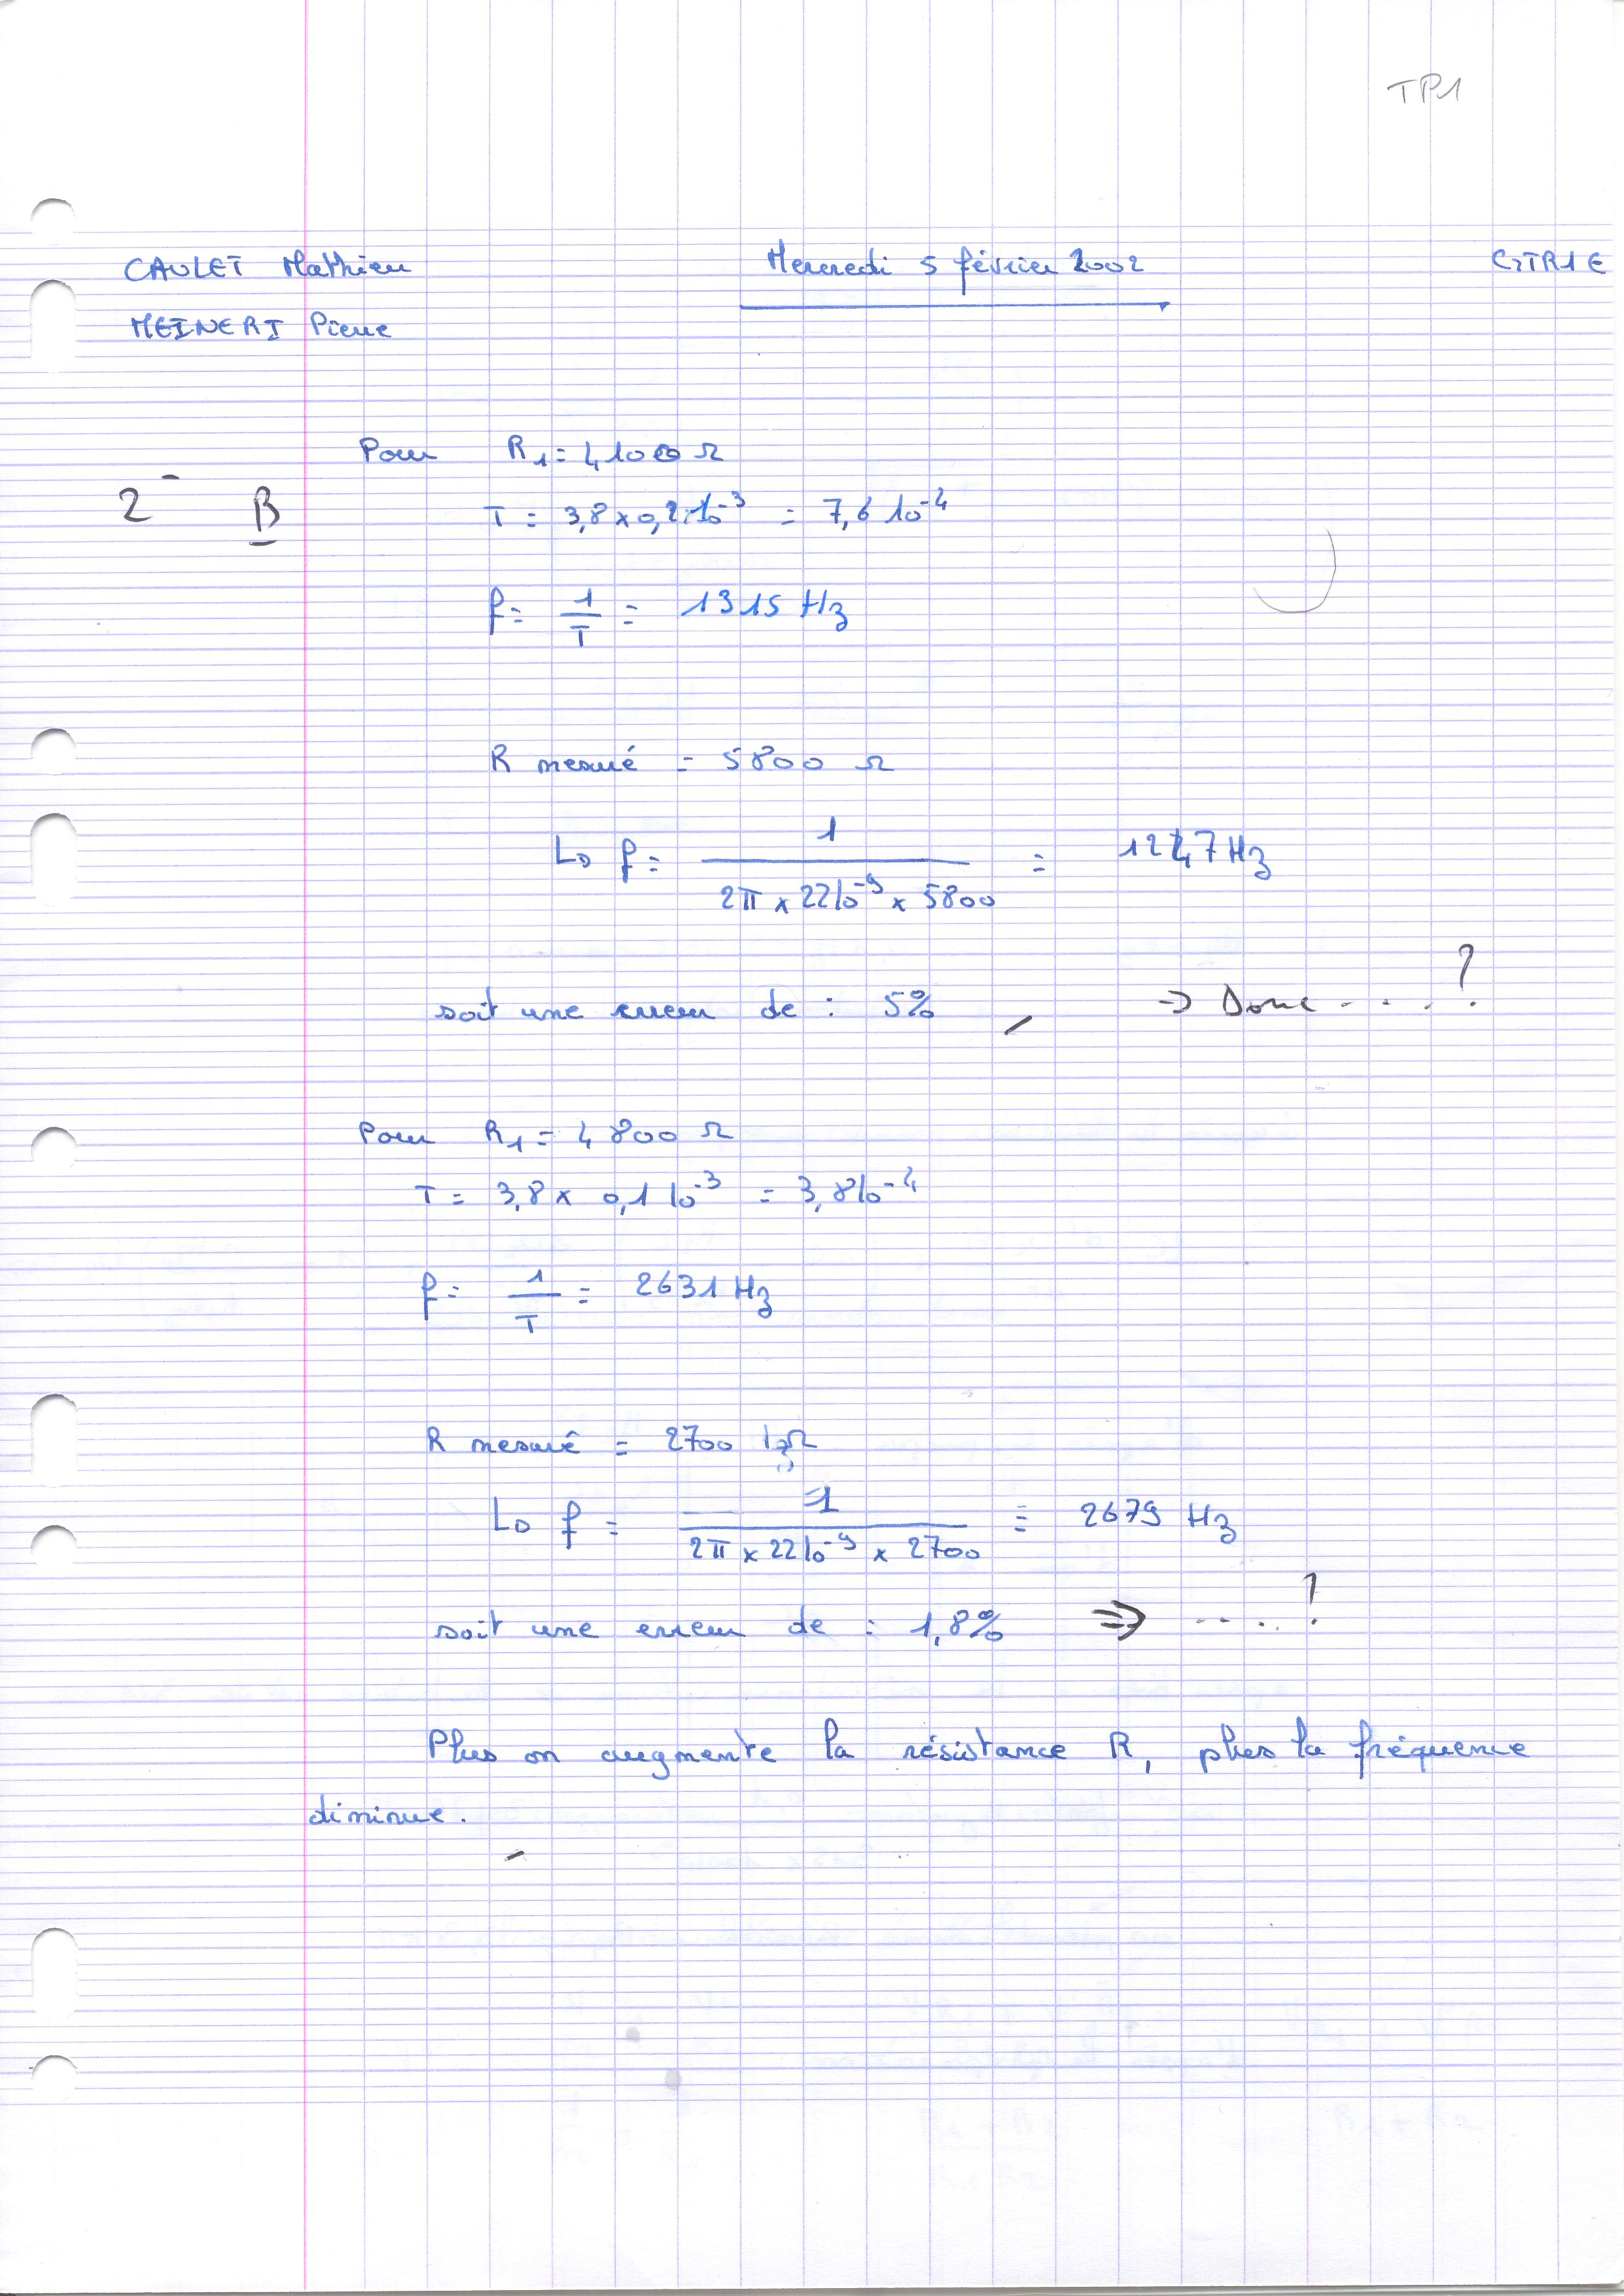 TP1
CAULET Mathieu Mercredi 5 février 2002 GTR1E
MEINERI Pierre
Pour R₁ = 4100 Ω
2 - B T = 3,8 x 0,2 10⁻³ = 7,6 10⁻⁴
f = 1/T = 1315 Hz
R mesuré = 5800 Ω
↳ f = 1/(2π x 22 10⁻⁹ x 5800) = 1247 Hz
soit une erreur de : 5% → Donc ....?
Pour R₁ = 4800 Ω
T = 3,8 x 0,1 10⁻³ = 3,8 10⁻⁴
f = 1/T = 2631 Hz
R mesuré = 2700 Ω
↳ f = 1/(2π x 22 10⁻⁹ x 2700) = 2679 Hz
soit une erreur de : 1,8% ⇒ ....?
Plus on augmente la résistance R, plus la fréquence
diminue.